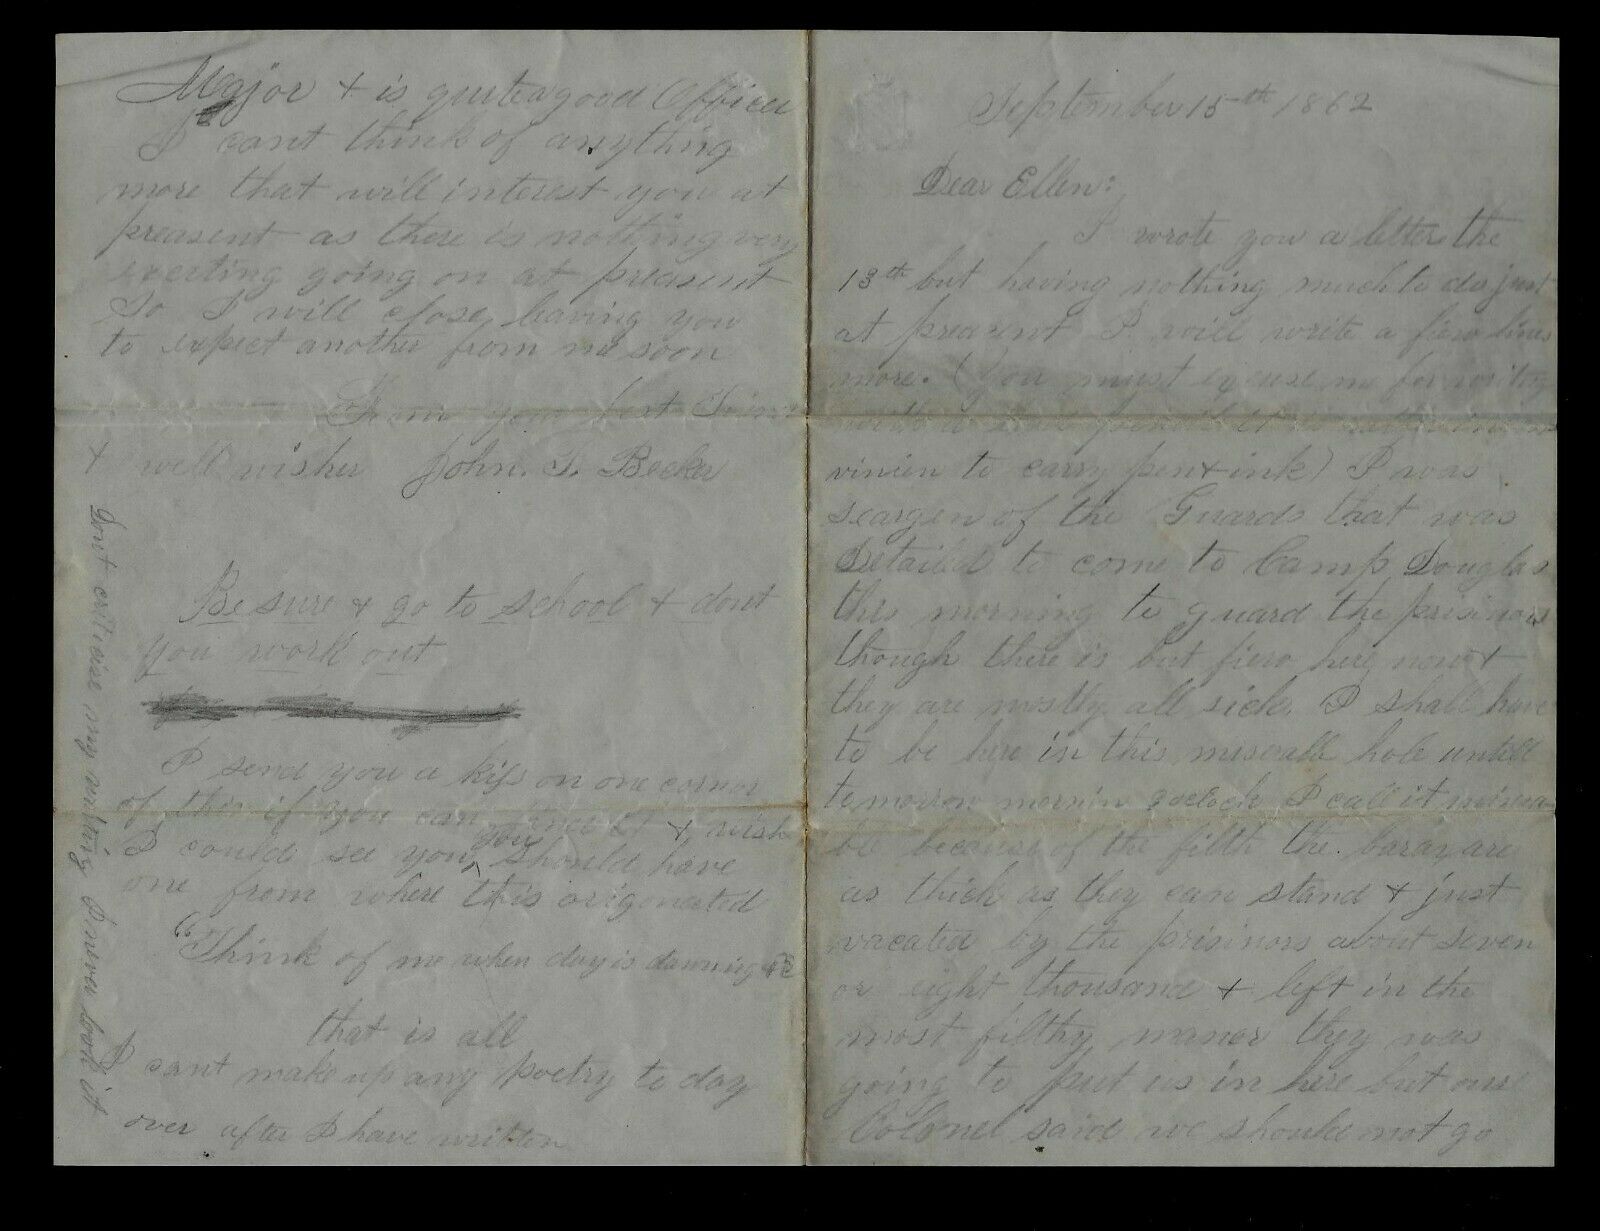 September 15th 1862
Dear Ellen:
I wrote you a letter the
13th but having nothing much to do just
at preasent I will write a fiew lines
more. (You must excuse me for writing
with a
vinien to carry pen & ink) I was
seargen of the Guards that was
Detailed to come to Camp Douglas
this morning to guard the prisinors
though there is but fiew here now &
they are mostly all sick. I shall have
to be here in this miserable hole untill
tomorrow mornin 9 oclock I call it misera
ble because of the filth the barax are
as thick as they can stand & just
vacated by the prisinors about seven
or eight thousand & left in the
most filthy maner they was
going to put us in here but our
Colonel said we should not go
Major & is quite a good Officer
I cant think of anything
more that will interest you at
preasent as there is nothing very
exciting going on at preasent
So I will close, leaving you
to expect another from me soon
From your best Frind
& well wisher John. T. Becker
Be sure & go to school & dont
you work out
I send you a kiss on one cornor
of this if you can find it & wish
I could see you, you should have
one from where this origonated
"Think of me when day is dawning &c
that is all
I cant make up any poetry to day
over after I have written
Dont critisise my writing I never look it